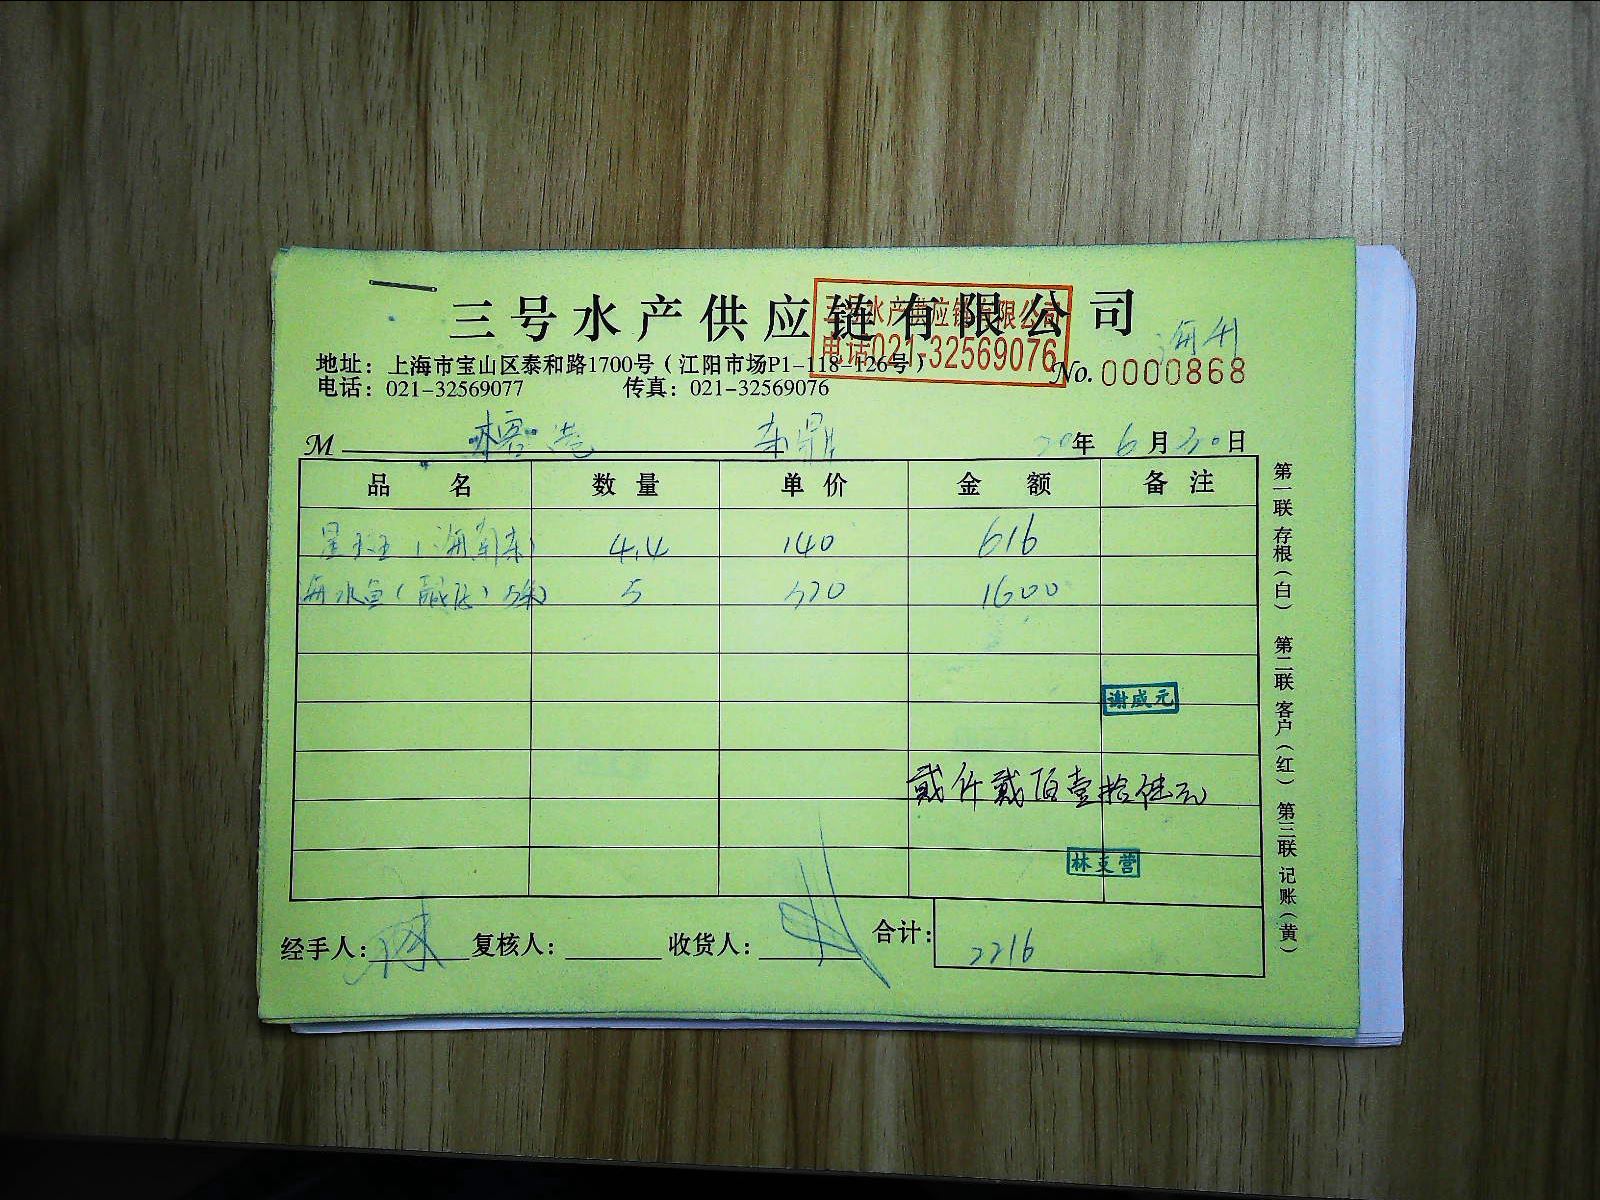 三号水产供应链有限公司
三号水产供应链有限公司
电话021-32569076
海州
地址：上海市宝山区泰和路1700号（江阳市场P1-118-126号）
No. 0000868
电话：021-32569077 传真：021-32569076
M 榕港 20年6月30日
品名 数量 单价 金额 备注
星斑（海南东） 4.4 140 616
海水鱼 5 320 1600
谢成元
贰仟贰佰壹拾陆元
林支营
经手人： 复核人： 收货人： 合计： 2216
第一联 存根（白） 第二联 客户（红） 第三联 记账（黄）